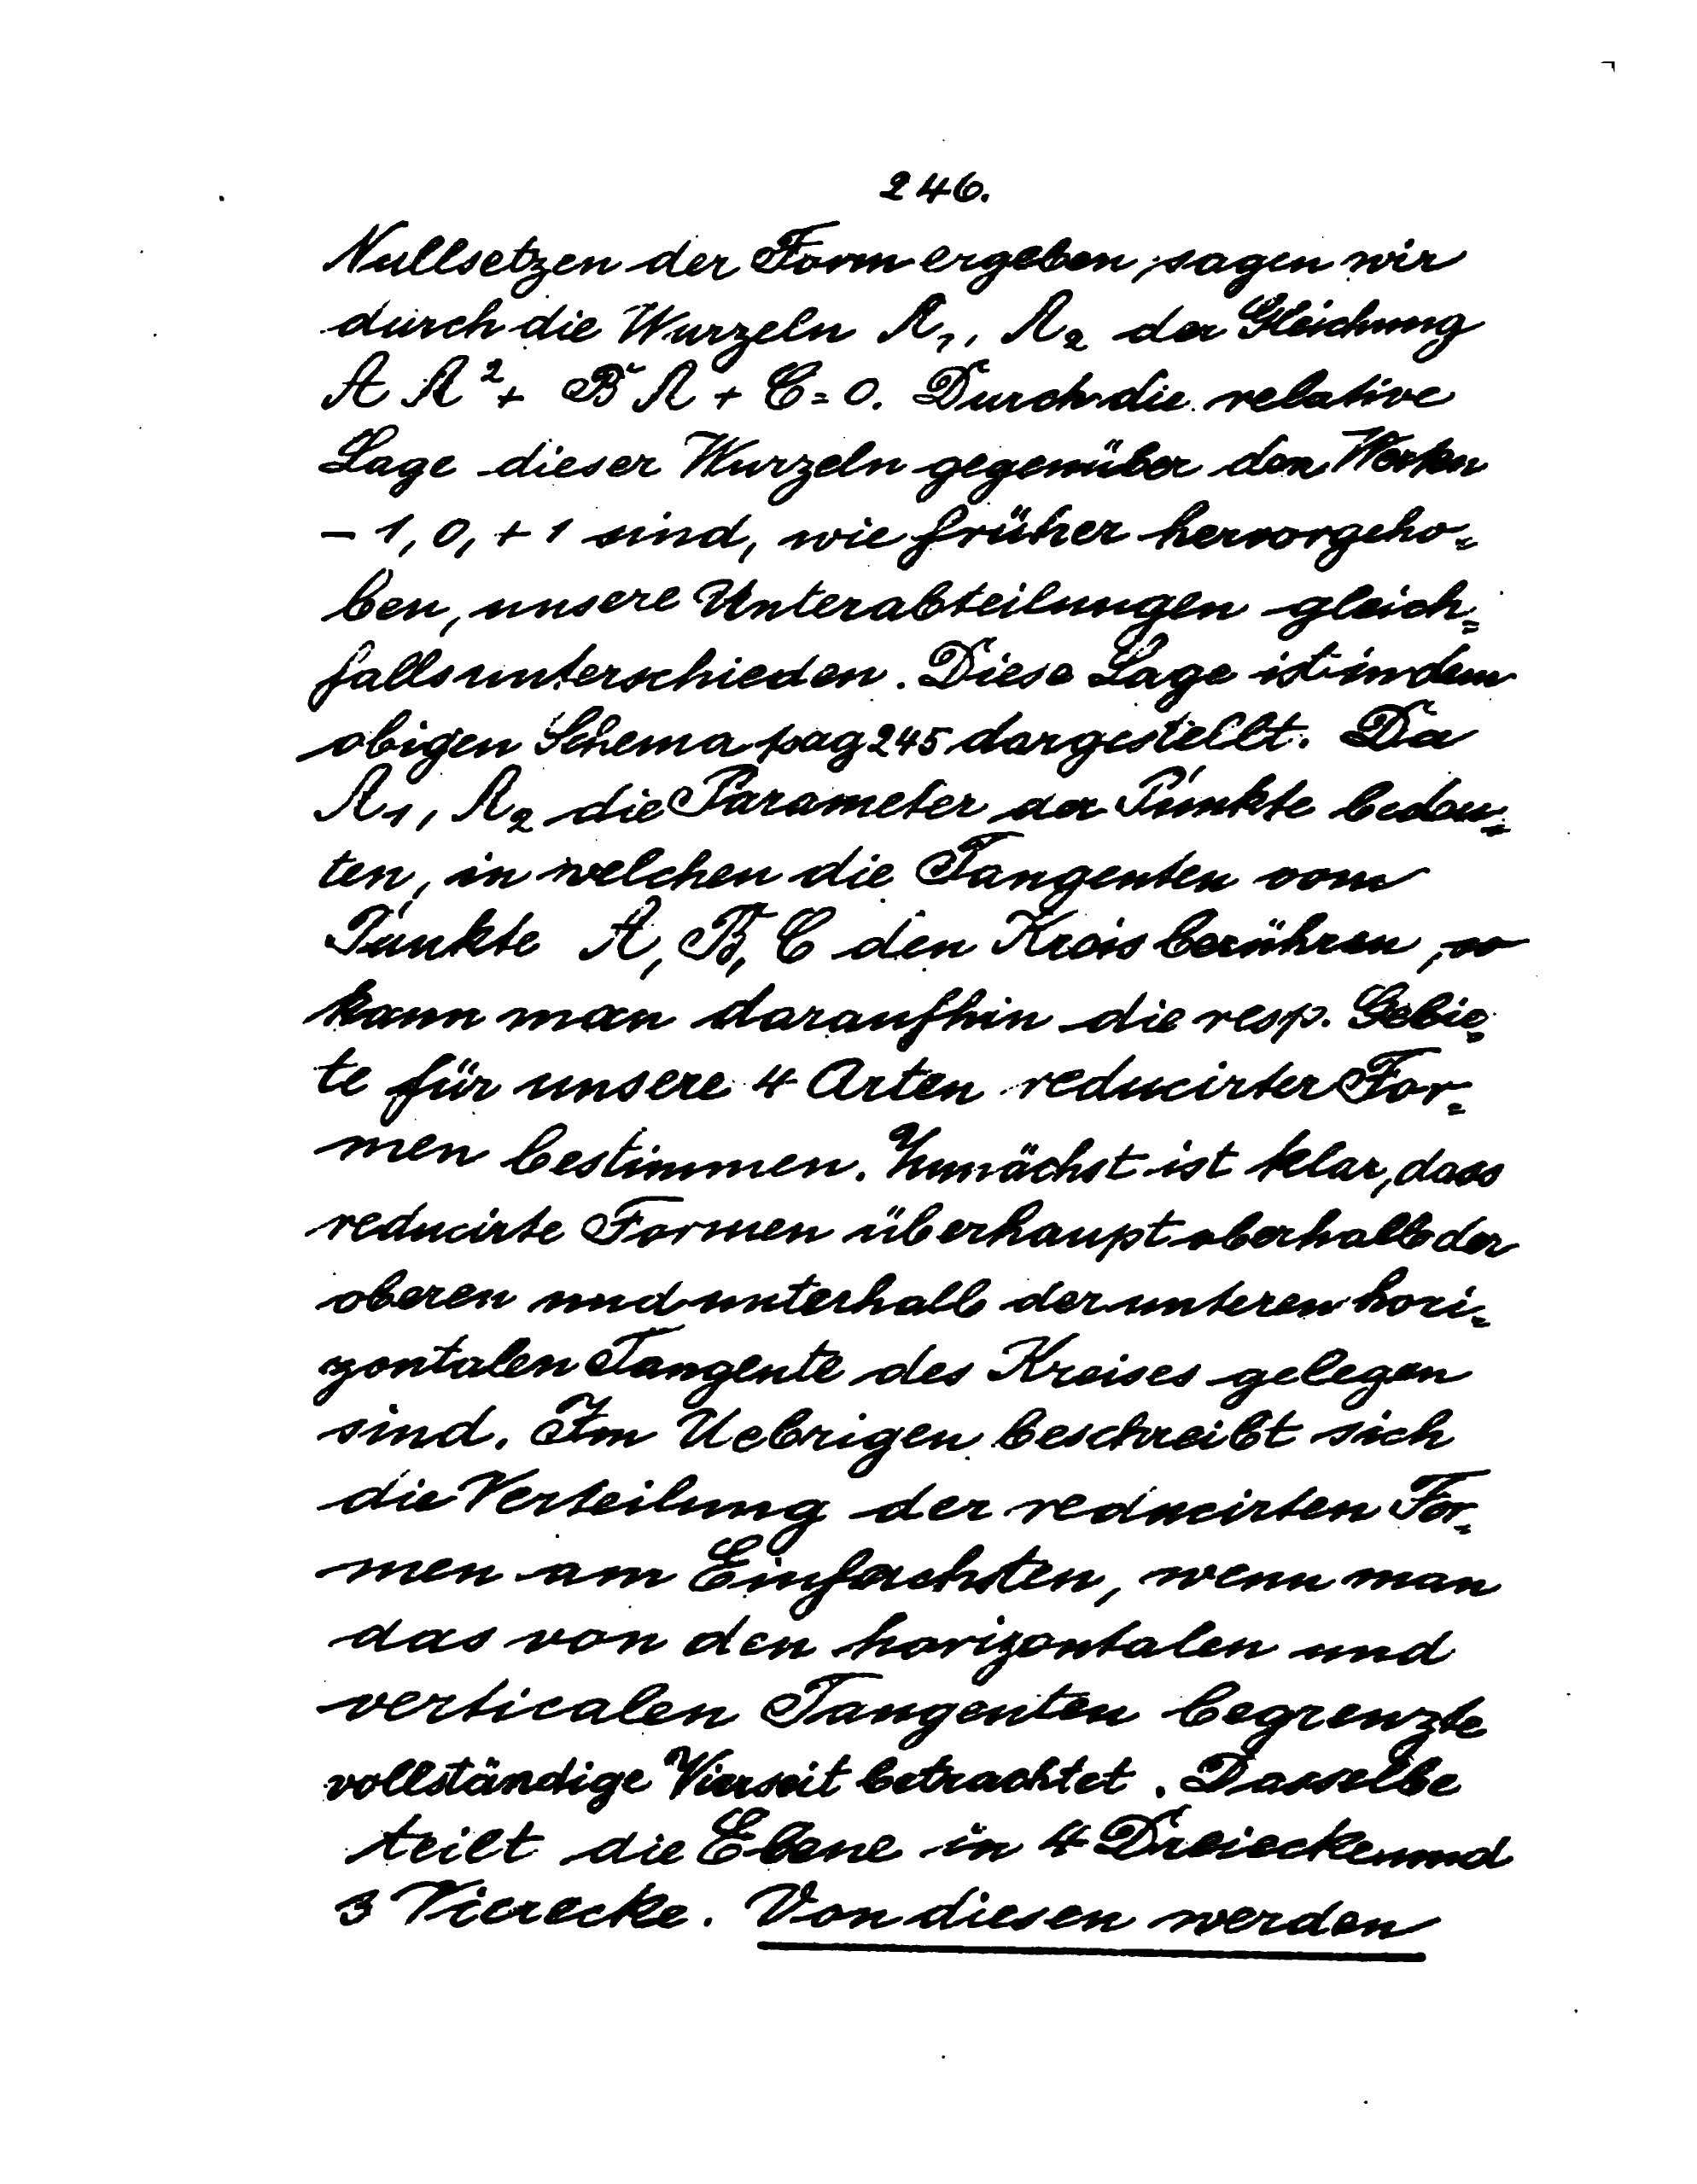 246.
Nullsetzen der Form ergeben, sagen wir
durch die Wurzeln Λ₁, Λ₂ der Gleichung
A Λ² + B Λ + C = 0. Durch die relative
Lage dieser Wurzeln gegenüber den Werten
- 1, 0, + 1 sind, wie früher hervorgeho=
ben, unsere Unterabteilungen gleich=
falls unterschieden. Diese Lage ist in dem
obigen Schema pag 245 dargestellt. Da
Λ₁, Λ₂ die Parameter der Punkte bedeu=
ten, in welchen die Tangenten vom
Punkte A, B, C den Kreis berühren, so
kann man daraufhin die resp. Gebie=
te für unsere 4 Arten reducirter For=
men bestimmen. Zunächst ist klar, dass
reducirte Formen überhaupt oberhalb der
oberen und unterhalb der unteren hori=
zontalen Tangente des Kreises gelegen
sind. Im Uebrigen beschreibt sich
die Verteilung der reducirten For=
men am Einfachsten, wenn man
das von den horizontalen und
verticalen Tangenten begrenzte
vollständige Vierseit betrachtet. Dasselbe
teilt die Ebene in 4 Dreiecke und
3 Vierecke. Von diesen werden